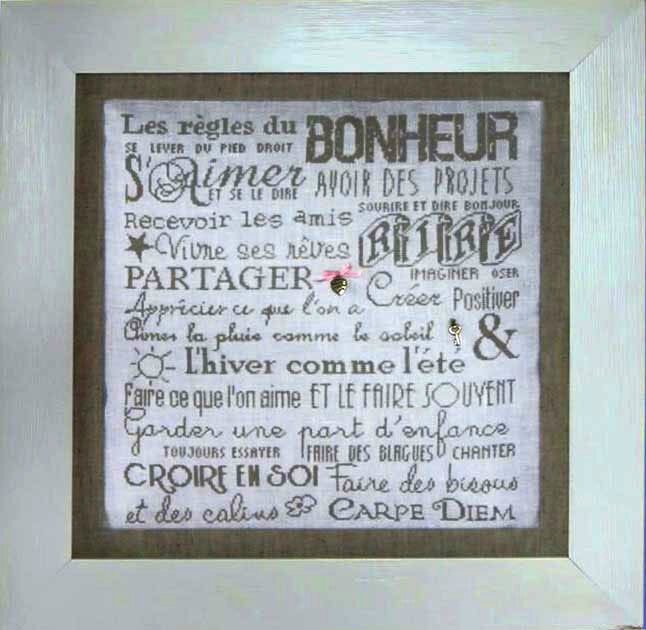 Les règles du BONHEUR
SE LEVER DU PIED DROIT
S'Aimer ET SE LE DIRE AVOIR DES PROJETS
SOURIRE ET DIRE BONJOUR
Recevoir les amis
Vivre ses rêves RIIIRE
PARTAGER IMAGINER OSER
Apprécier ce que l'on a Créer Positiver
Aimer la pluie comme le soleil &
L'hiver comme l'été
Faire ce que l'on aime ET LE FAIRE SOUVENT
Garder une part d'enfance
TOUJOURS ESSAYER FAIRE DES BLAGUES CHANTER
CROIRE EN SOI Faire des bisous
et des calins CARPE DIEM